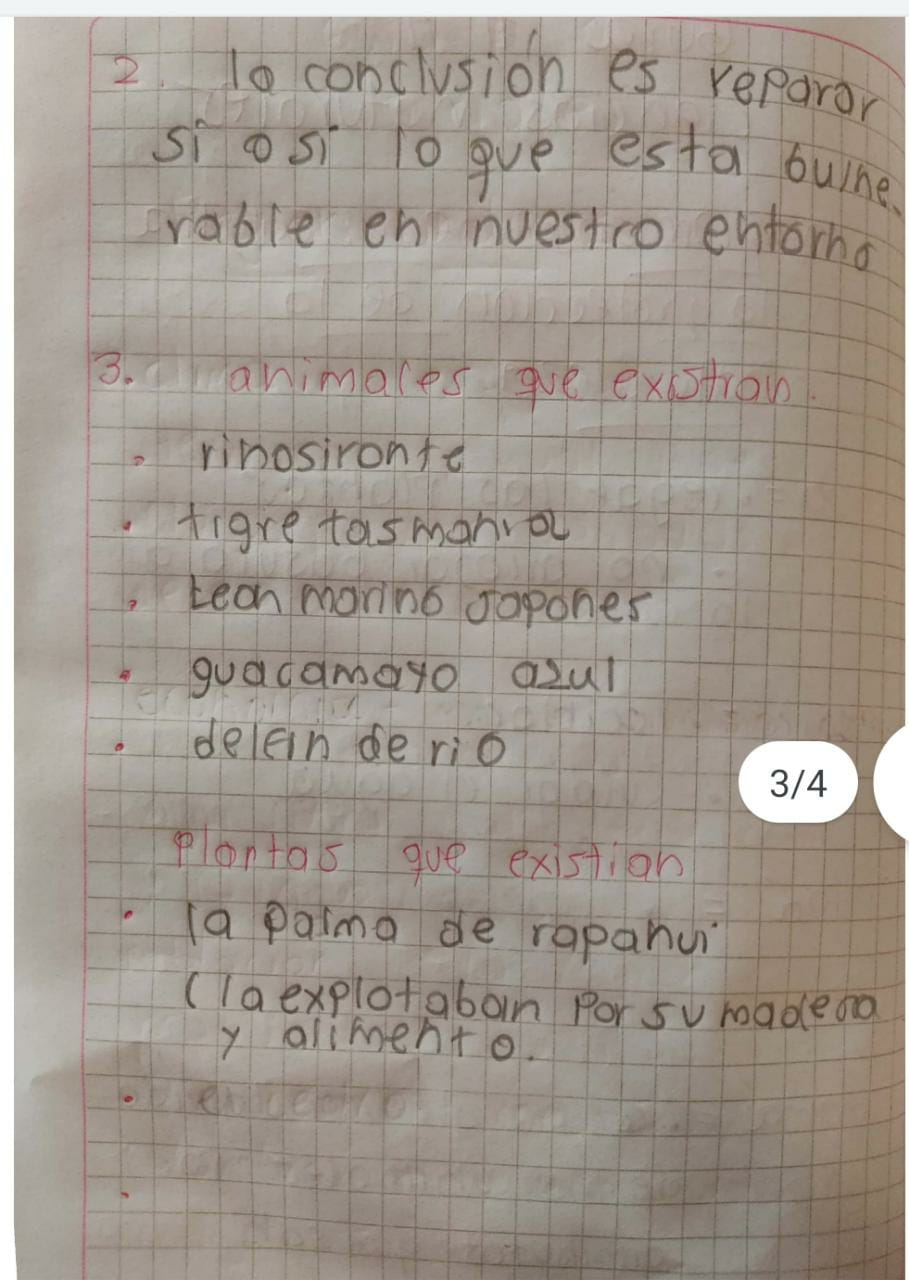 2. la conclusión es reparar
si o si lo que esta bulne.
rable en nuestro entorno
3. animales que existian.
• rinosironte
• tigre tasmania
• Leon marino Japones
• guacamayo azul
• delfin de rio
3/4
plantas que existian
• la palma de rapanui
(la explotaban por su madera
y alimento.
•
•